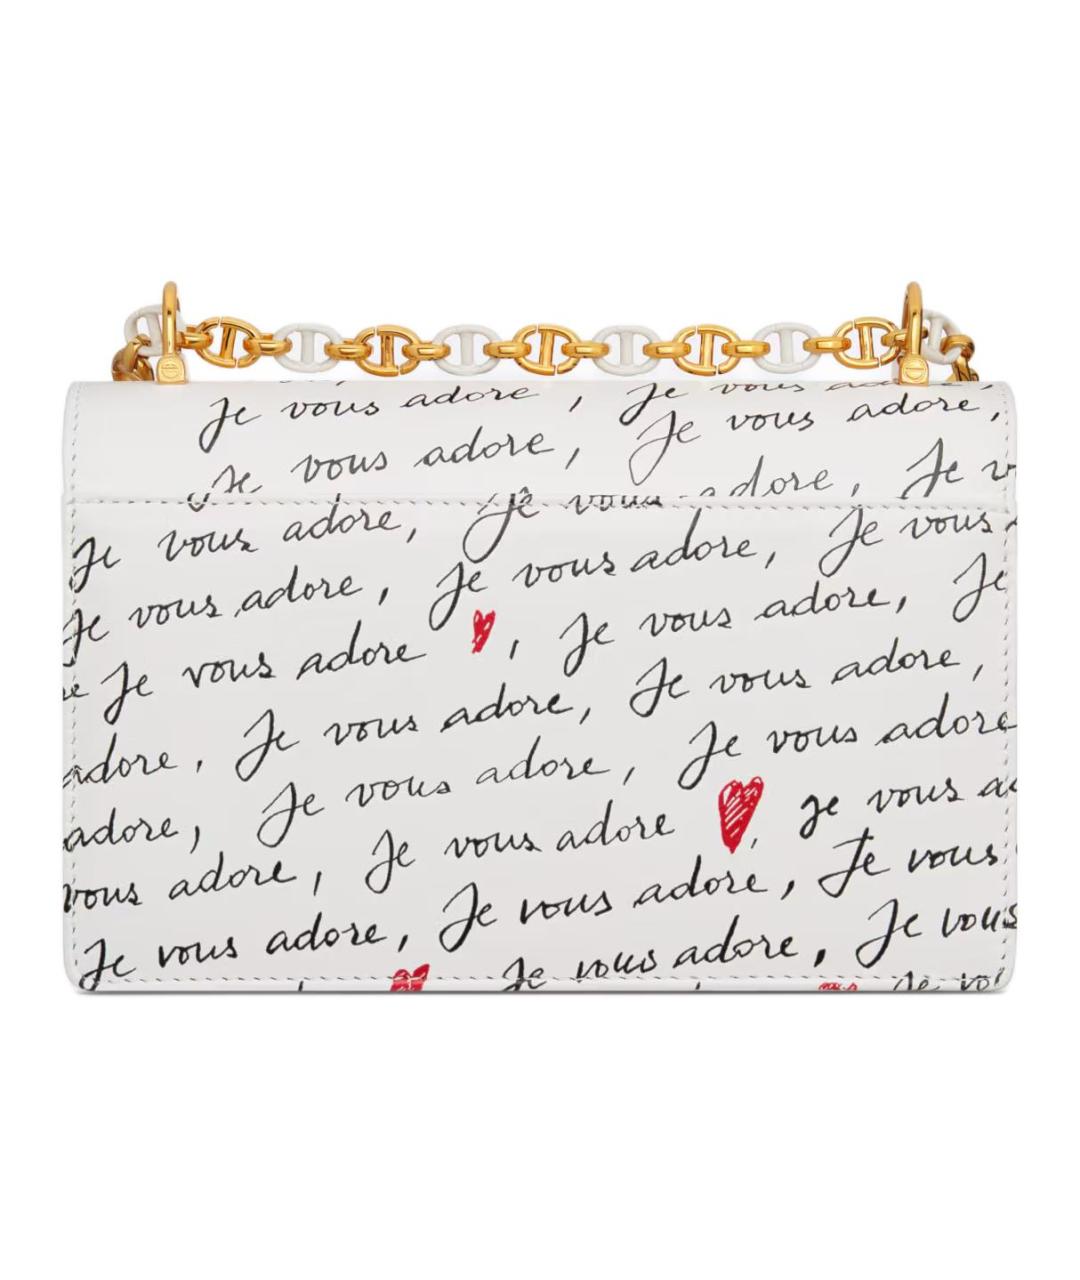 Je vous adore, Je vous
Je vous adore, Je vous adore,
Je vous adore, Je v
Je vous adore, Je vous adore,
Je vous adore, Je vous adore, Je vous
Je vous adore, Je vous adore, Je
Je vous adore, Je vous adore,
adore, Je vous adore, Je vous adore
adore, Je vous adore, Je vous a
vous adore, Je vous adore, Je vous
Je vous adore, Je vous adore, Je vous
Je vo